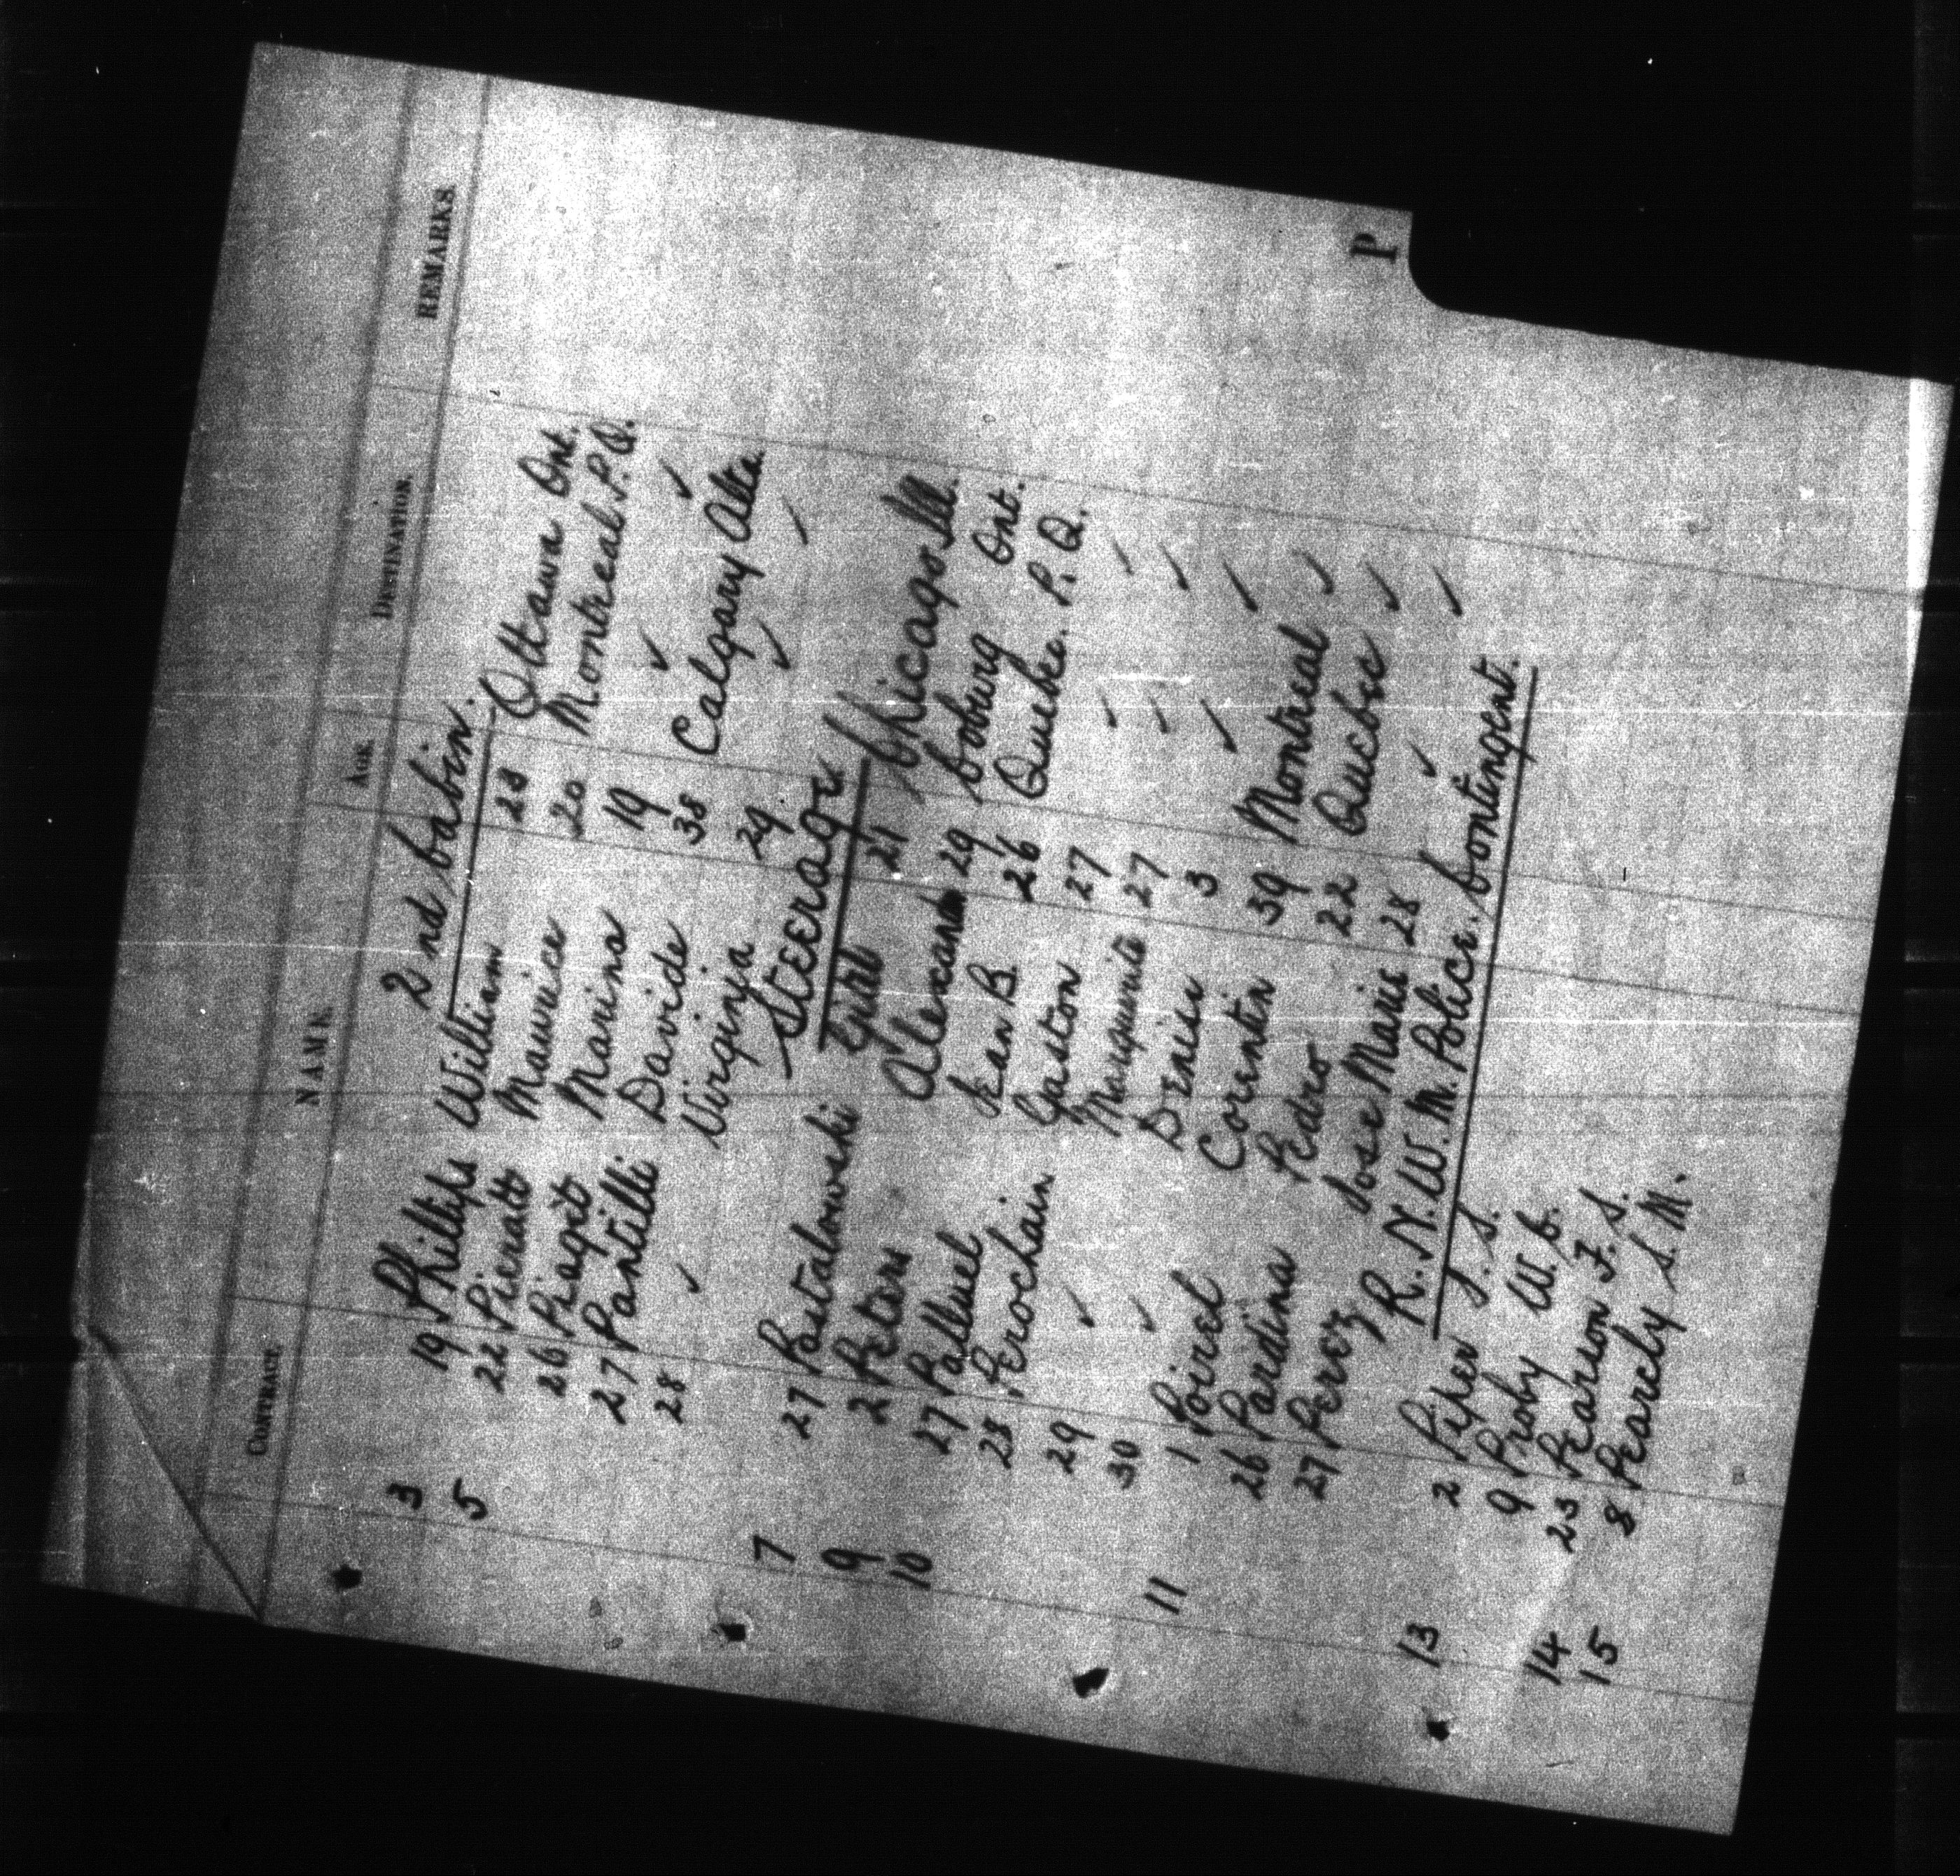 CONTRACT. NAME. AGE. DESTINATION. REMARKS.
2nd Cabin.
3 19 Phillips William 23 Ottawa Ont.
5 22 Pieratt Maurice 20 Montreal P.Q.
26 Piaget Marina 19 ✓ ✓
27 Pantilli Davide 38 Calgary Alta.
28 ✓ Virginia 29 ✓ ✓
Steerage
7 27 Pastalowski 21 Chicago Ill.
9 2 Peters 29 Coburg Ont.
10 27 Palluel Jean B. 26 Quebec. P.Q.
28 Perochain Gaston 27 ✓ ✓
29 ✓ Marguerite 27 ✓ ✓
30 ✓ Denise 3 ✓ ✓
11 1 Poirel Corentin 39 Montreal ✓
26 Pardina Pedro 22 Quebec ✓
27 Perez Jose Marie 28 ✓ ✓
R.N.W.M. Police. Contingent.
13 2 Piper J. S.
9 Proby W. C.
14 23 Pearson F. S.
15 8 Pearcly S. M.
P